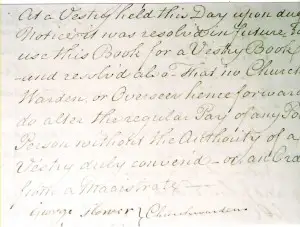 At a Vestry held this Day upon due
Notice it was resolved in future to
use this Book for a Vestry Book
and resolvd also That no Church
Warden, or Overseer hence forward
do alter the regular Pay of any Po
Person without the Authority of a
Vestry duly convend – or an Ord
from a Magistrate —
George Flower } Churchwarden